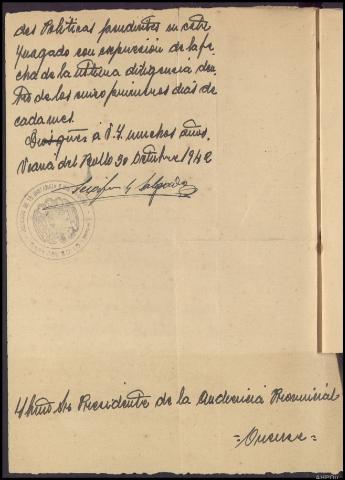 des Politicas pendientes en este
Juzgado con expresion de la fe
cha de la ultima diligencia den
tro de los cinco primeros dias de
cada mes.
Dios gue a V.I. muchos años.
Viana del Bollo 30 Octubre 1942
Salgado
Yltmo Sr Presidente de la Audiencia Provincial
=Orense=
AHPOU